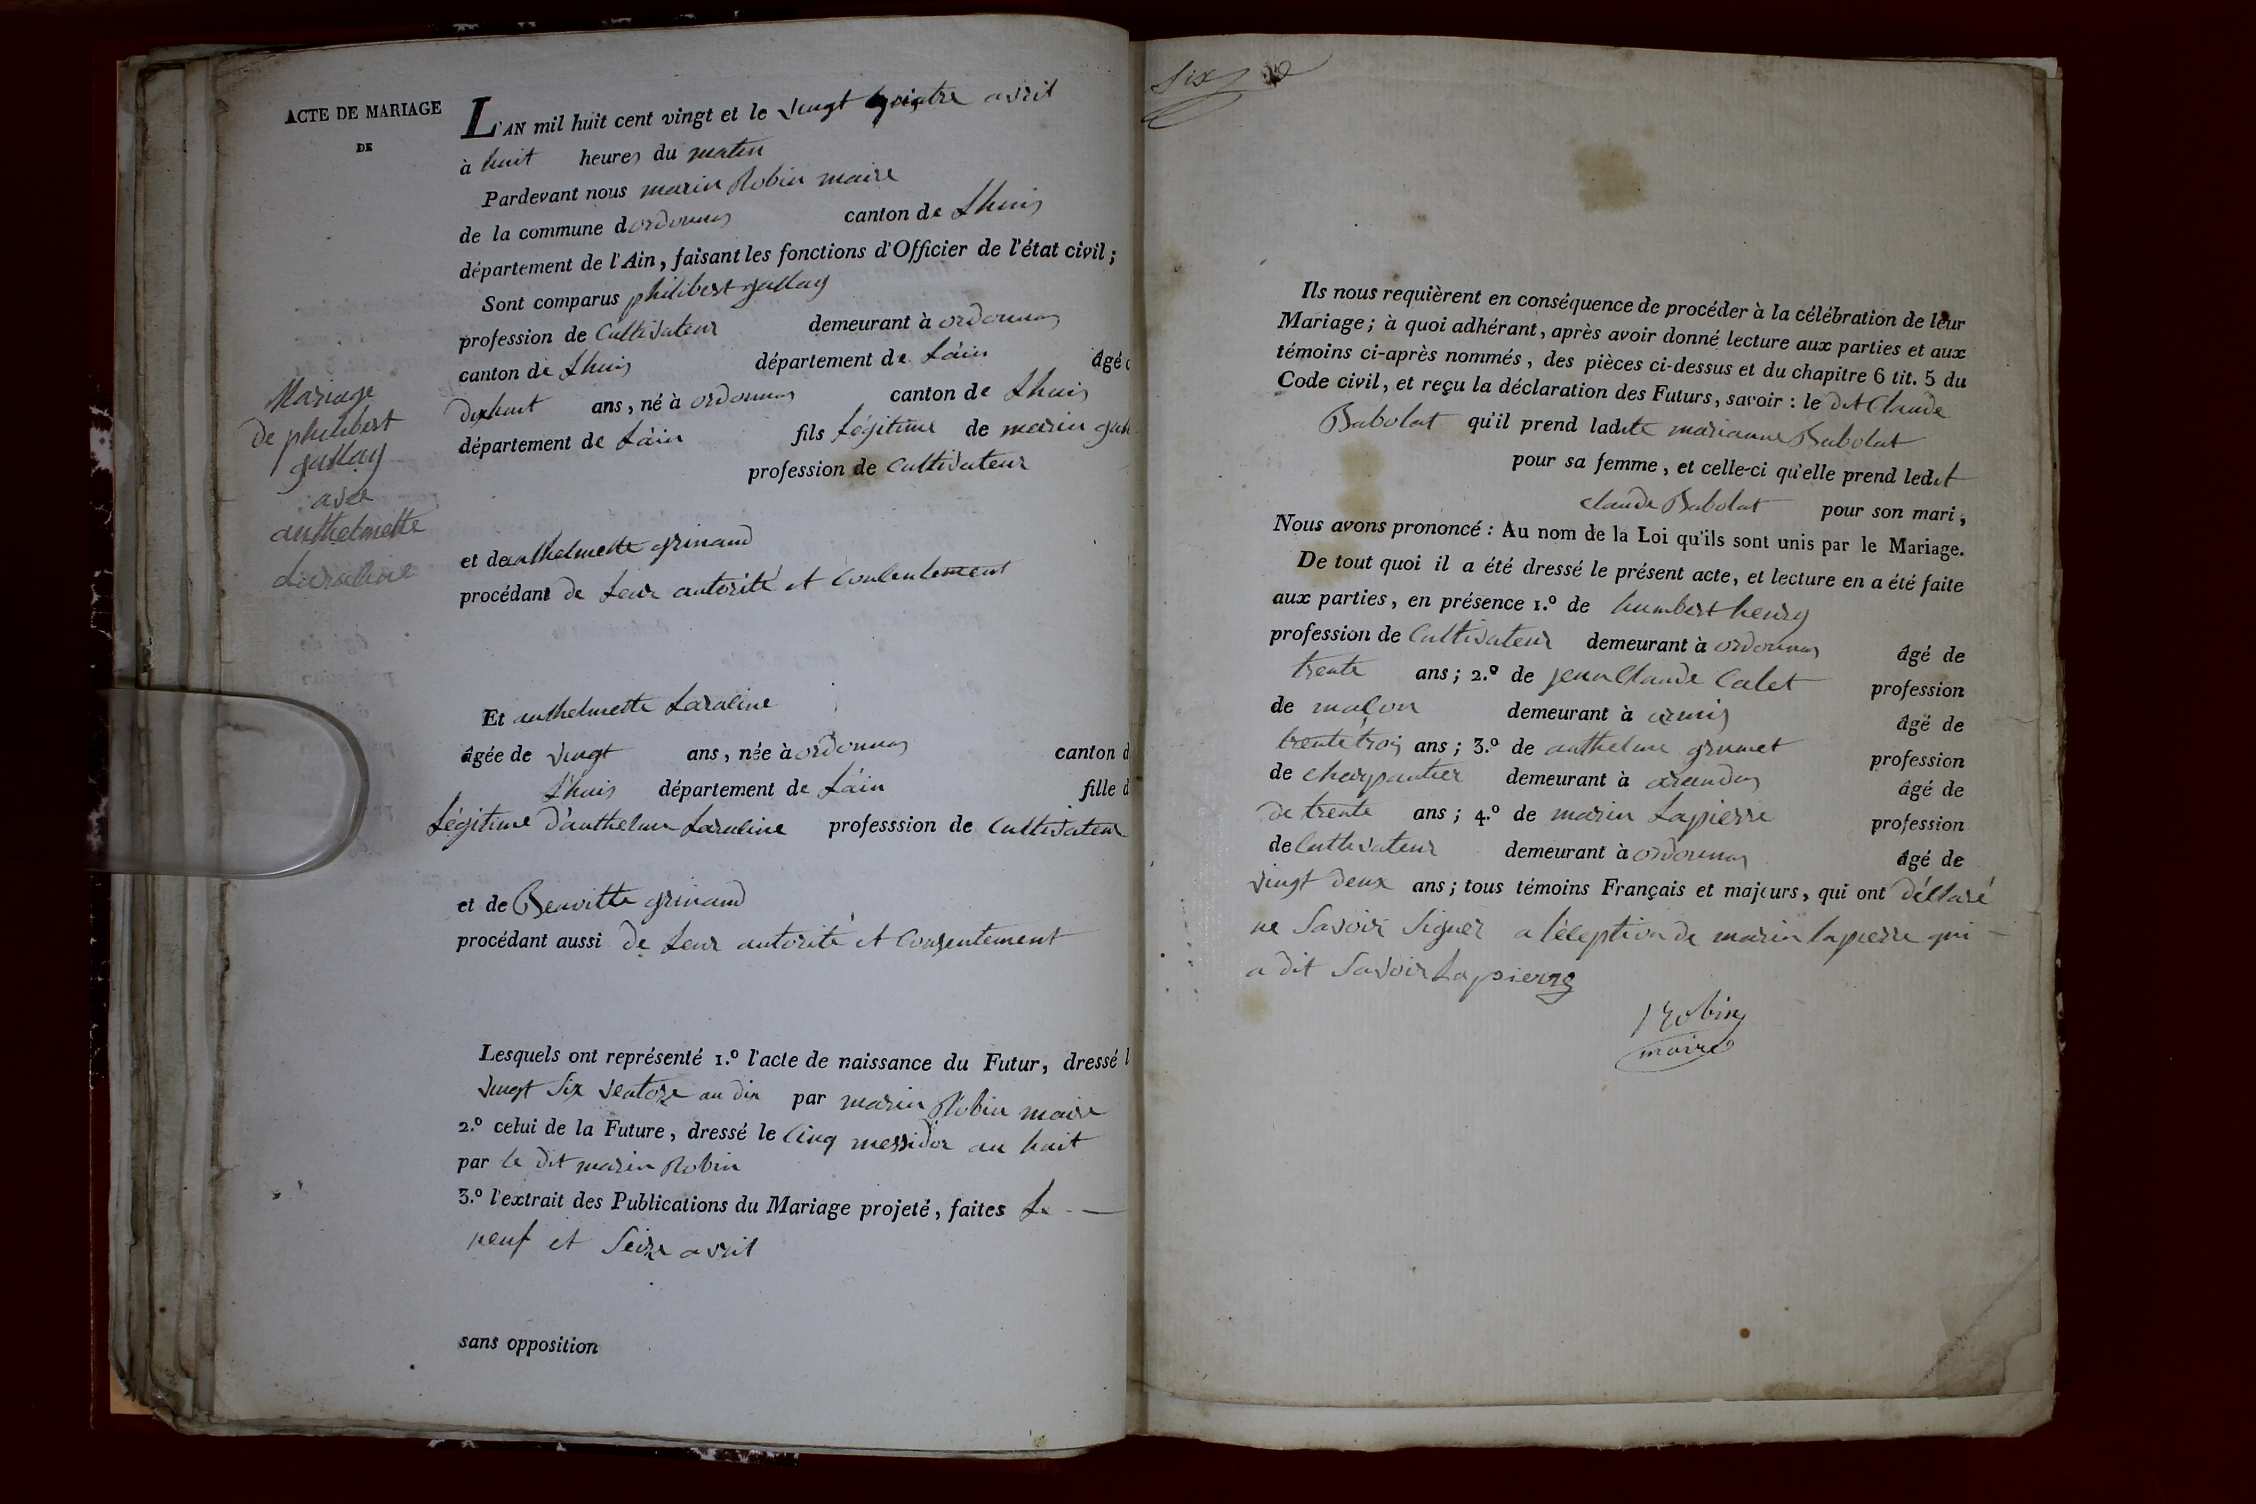 ACTE DE MARIAGE
DE
Mariage
de philibert
gallay
avec
anthelmette
Laraline
L'AN mil huit cent vingt et le vingt quatre avril
à huit heures du matin
Pardevant nous marin Robin maire
de la commune dordonnas canton de Lhuis
département de l'Ain, faisant les fonctions d'Officier de l'état civil ;
Sont comparus philibert gallay
profession de Cultivateur demeurant à ordonnas
canton de Lhuis département de Láin âgé
dixhuit ans, né à ordonnas canton de Lhuis
département de Láin fils Légitime de marin
profession de Cultivateur
et de anthelmette grinand
procédant de Leur autorité et Consentement
Et anthelmette Laraline
âgée de vingt ans, née à ordonnas canton
Lhuis département de Láin fille
Légitime d'anthelme Laraline professsion de Cultivateur
et de Benoitte grinand
procédant aussi de Leur autorité et Consentement
Lesquels ont représenté 1.º l'acte de naissance du Futur, dressé
vingt Six ventose an dix par marin Robin maire
2.º celui de la Future, dressé le Cinq messidor an huit
par le dit marin Robin
3.º l'extrait des Publications du Mariage projeté, faites Le
neuf et Seize avril
sans opposition
Six
Ils nous requièrent en conséquence de procéder à la célébration de leur
Mariage ; à quoi adhérant, après avoir donné lecture aux parties et aux
témoins ci-après nommés, des pièces ci-dessus et du chapitre 6 tit. 5 du
Code civil, et reçu la déclaration des Futurs, savoir : le dit Claude
Babolat qu'il prend ladite marianne Babolat
pour sa femme, et celle-ci qu'elle prend ledit
claude Babolat pour son mari,
Nous avons prononcé : Au nom de la Loi qu'ils sont unis par le Mariage.
De tout quoi il a été dressé le présent acte, et lecture en a été faite
aux parties, en présence 1.º de humbert henry
profession de Cultivateur demeurant à ordonnas âgé de
trente ans ; 2.º de jean Claude Calet profession
de maçon demeurant à armis âgé de
trente trois ans ; 3.º de anthelme grumet profession
de charpantier demeurant à arandas âgé de
de trente ans ; 4.º de marin Lapierre profession
de Cultivateur demeurant à ordonnas âgé de
vingt deux ans ; tous témoins Français et majeurs, qui ont déclaré
ne Savoir Signer a léception de marin lapierre qui
a dit Savoir Lapierre
Robin
maire